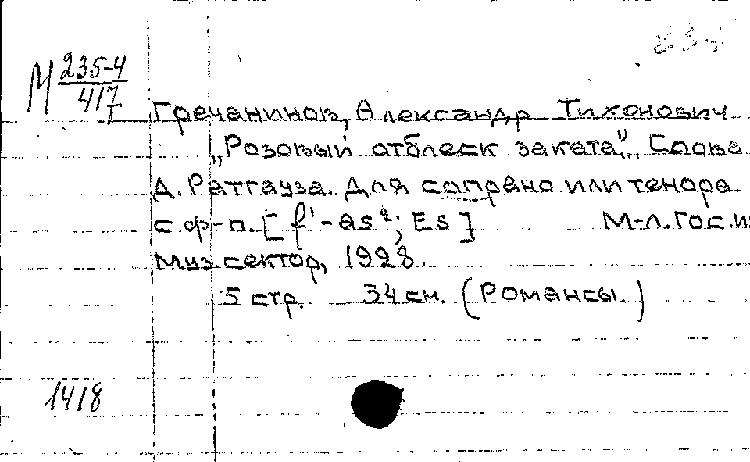 М 235-4
417
Гречанинов, Александр Тихонович
„Розовый отблеск заката“. Слова
Д. Ратгауза. Для сопрано или тенора
с ф-п. [f¹-as²; Es] М-Л. Гос. из
Муз. сектор, 1928.
5 стр. 34 см. (Романсы.)
1418